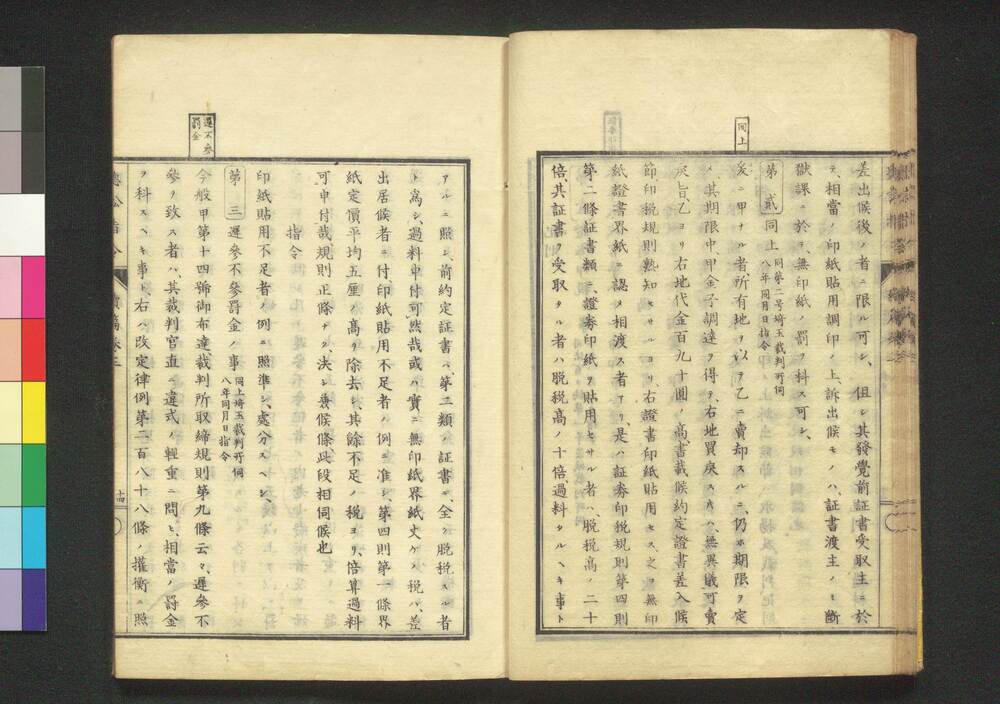 差出候後ノ者ニ限ル可シ、但シ其發覺前証書受取主ニ於
テ、相當ノ印紙貼用調印ノ上訴出候モノハ、証書渡主ノミ断
獄課ニ於テ無印紙ノ罰ヲ科ス可シ、
同上
第貳 同上 同第二号埼玉裁判所伺
八年同月日指令
爰ニ甲ナル者所有地ヲ以テ乙ニ賣却スルニ、仍ホ期限ヲ定
メ、其期限中、甲金子調達ヲ得テ、右地買戻スキハ、無異議可賣
戻旨、乙ヨリ右地代金百九十圓ノ高ヲ書載候約定證書差入候
節印税規則熟知セサルヨリ、右證書印紙貼用セス、之ヲ無印
紙證書界紙ニ認メ相渡ス者アリ、是ハ証券印税規則第四則
第二條証書類ニ證券印紙ヲ貼用セサル者ハ、脱税高ノ二十
倍、其証書ヲ受取タル者ハ脱税高ノ十倍過料タルヘキ事ト
アルニ照シ、前約定証書ハ、第二類ノ証書ニ、全ク脱税スル者
ト為シ、過料申付可然哉或ハ實ニ無印紙界紙丈ケノ税ハ、差
出居候者ニ付印紙貼用不足者ノ例ニ准シ、第四則第一條界
紙定價平均五厘ノ高ヲ除去シ、其餘不足ノ税ヨリ、倍算過料
可申付哉規則正條ナシ、決シ兼候條此段相伺候也
指令
印紙貼用不足者ノ例ニ照準シ、處分スヘシ、
遲不參
罰金
第三 遲參不參罰金ノ事 同上埼玉裁判所伺
八年同月日指令
今般甲第十四號御布達裁判所取締規則第九條云々、遲參不
參ヲ致ス者ハ、其裁判官直ニ違式ノ輕重ニ問ヒ、相當ノ罰金
ヲ科スヘキ事ト右ハ改定律例第二百八十八條ノ權衡ニ照
十四